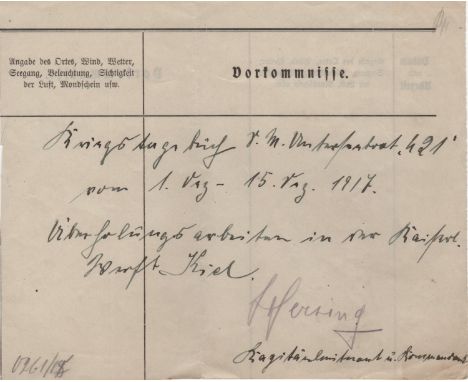 Angabe des Ortes, Wind, Wetter,
Seegang, Beleuchtung, Sichtigkeit
der Luft, Mondschein usw.
Vorkommnisse.
Kriegstagebuch S. M. Unterseeboot "U 21"
vom 1. Dez - 15. Dez. 1917.
Überholungsarbeiten in der Kaiserl.
Werft Kiel.
Hersing
Kapitänleutnant u. Kommandant